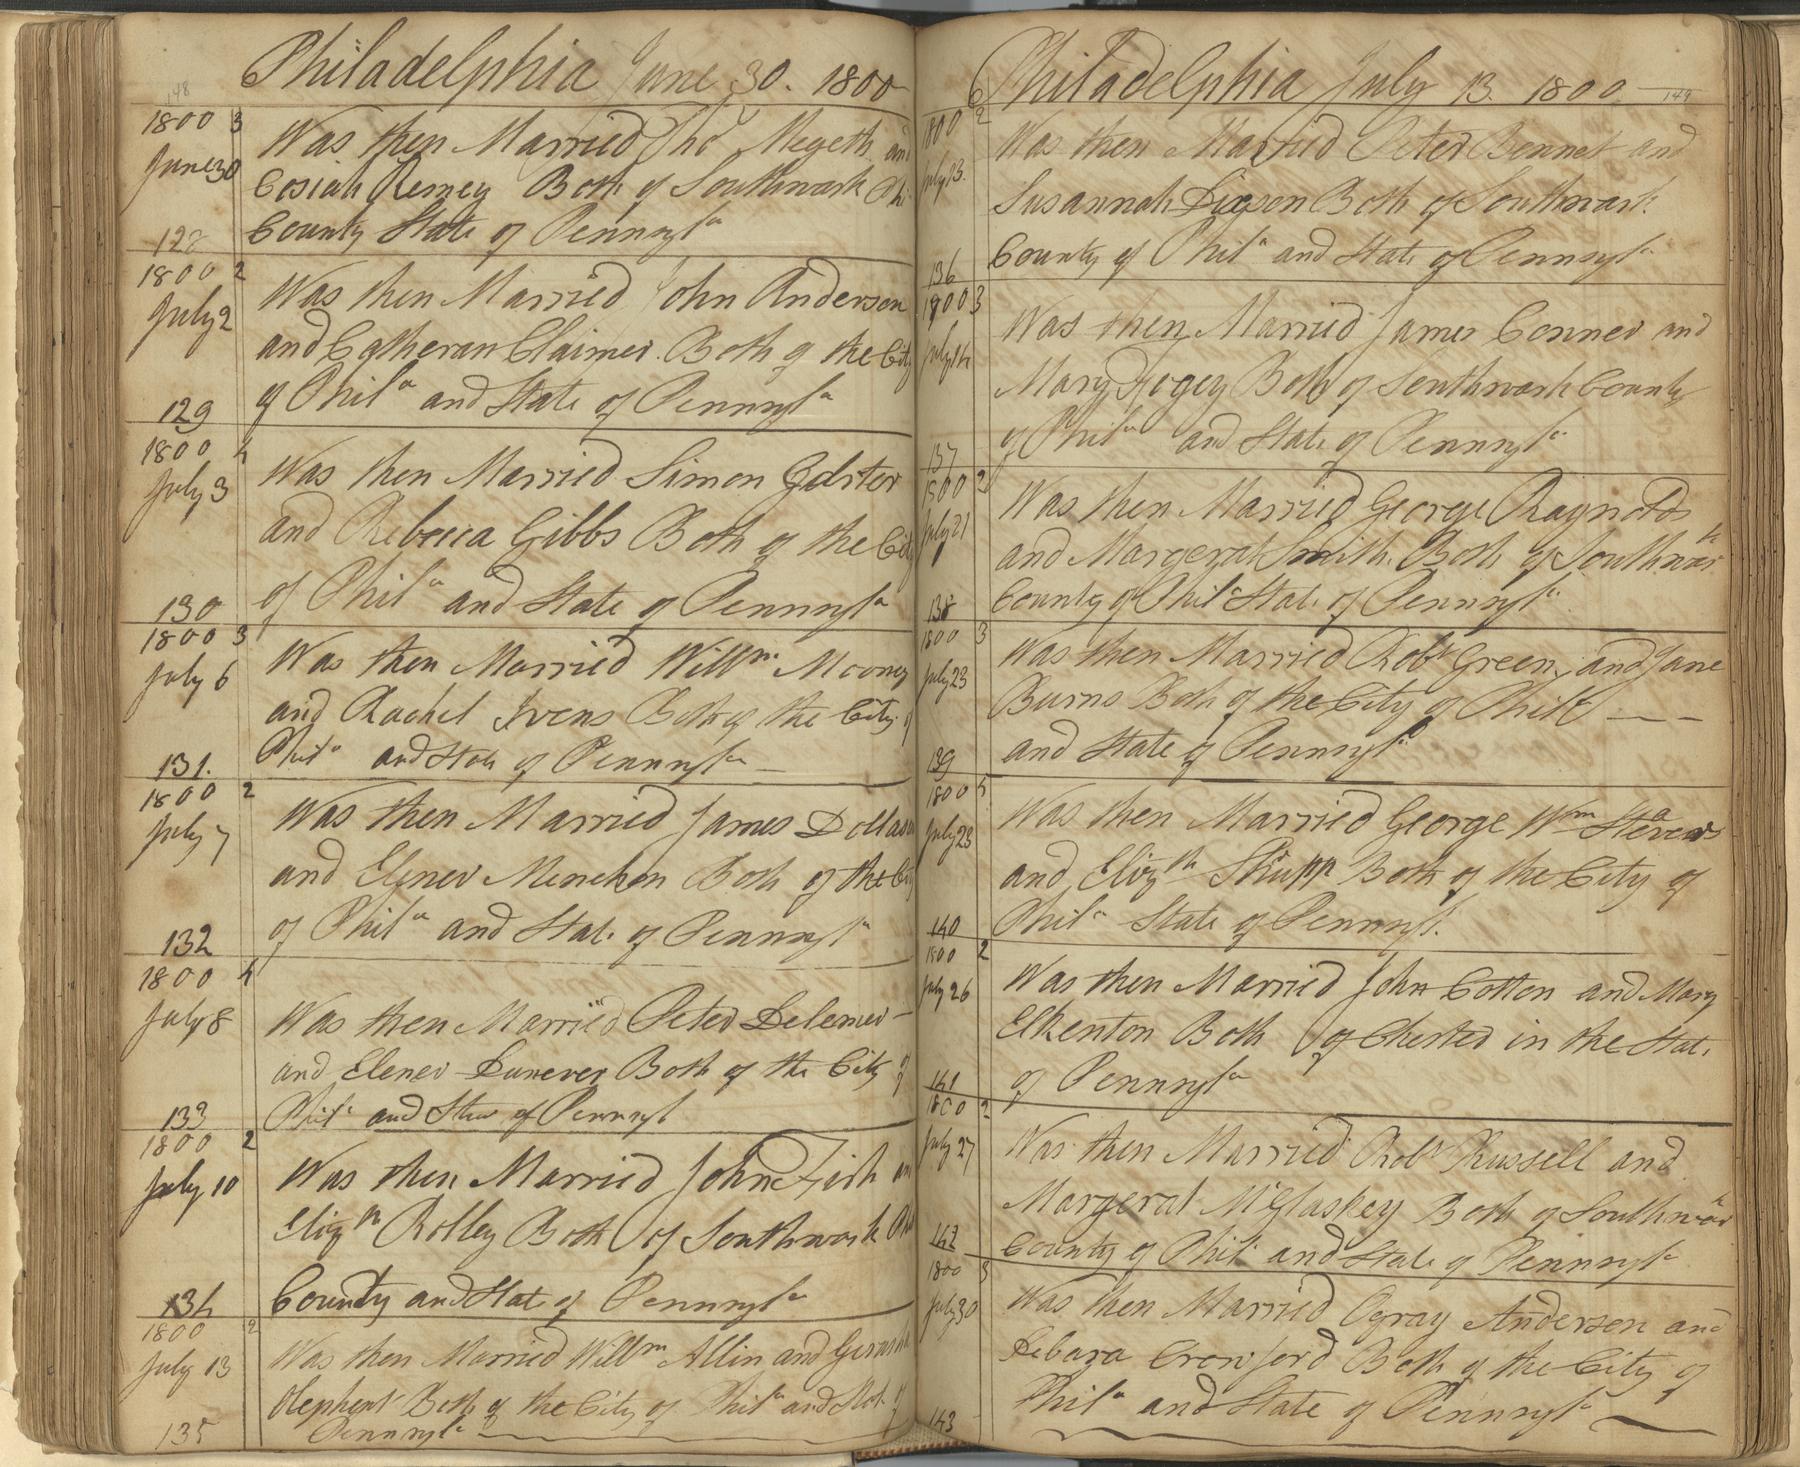 148
Philadelphia June 30. 1800
1800 3
June 30
128
Was then Married Tho Megeth and
Cosiah Remey Both of Southwark Phi
County State of Pennsyla
1800 2
July 2
129
Was then Married John Anderson
and Catheran Claimer. Both of the City
of Phila and State of Pennsyla
1800 4
July 3
130
Was then Married Simon
and Rebecca Gibbs Both of the City
of Phila and State of Pennsyla
1800 3
July 6
131.
Was then Married Willm. Mooney
and Rachel Ivens Both of the City of
Phila and State of Pennsyla
1800 2
July 7
132
Was then Married James
and Elener Menchen Both of the City
of Phila and State of Pennsyla
1800 4
July 8
133
Was then Married Peter Delemer
and Elener Dunever Both of the City of
Phila and State of Pennsyl
1800 2
July 10
134
Was then Married John Fish an
Elizth Rolley Both of Southwark
County and State of Pennsyla
1800 2
July 13
135
Was then Married Willm Allin and
Olephent Both of the City of Phila and Stat of
Pennsyla
Philadelphia July 13. 1800
149
1800 2
July 13.
136
Was then Married Peter Bennet and
Susannah Dixson Both of Southwark
County of Phila and State of Pennsyla
1800 3
July 14
137
Was then Married James Conner and
Mary Hogey Both of Southwark County
of Phila and State of Pennsyla
1800 2
July 21
138
Was then Married George Raynolds
and Margerat Smith. Both of Southwark
County of Phila State of Pennsyla
1800 3
July 23
139
Was then Married Robt Green, and Jane
Burns Both of the City of Phila
and State of Pennsyla
1800 4
July 23
140
Was then Married George Wm Stevens
and Elizth Shupp Both of the City of
Phila State of Pennsyl.
1800 2
July 26
141
Was then Married John Cotten and Mary
Elkenton Both of Chester in the State
of Pennsyla
1800 2
July 27
142
Was then Married Robt Russell and
Margerat McGlaskey Both of Southwark
County of Phila and State of Pennsyla
1800 3
July 30
143
Was then Married Ogray Anderson and
Crawford Both of the City of
Phila and State of Pennsyla